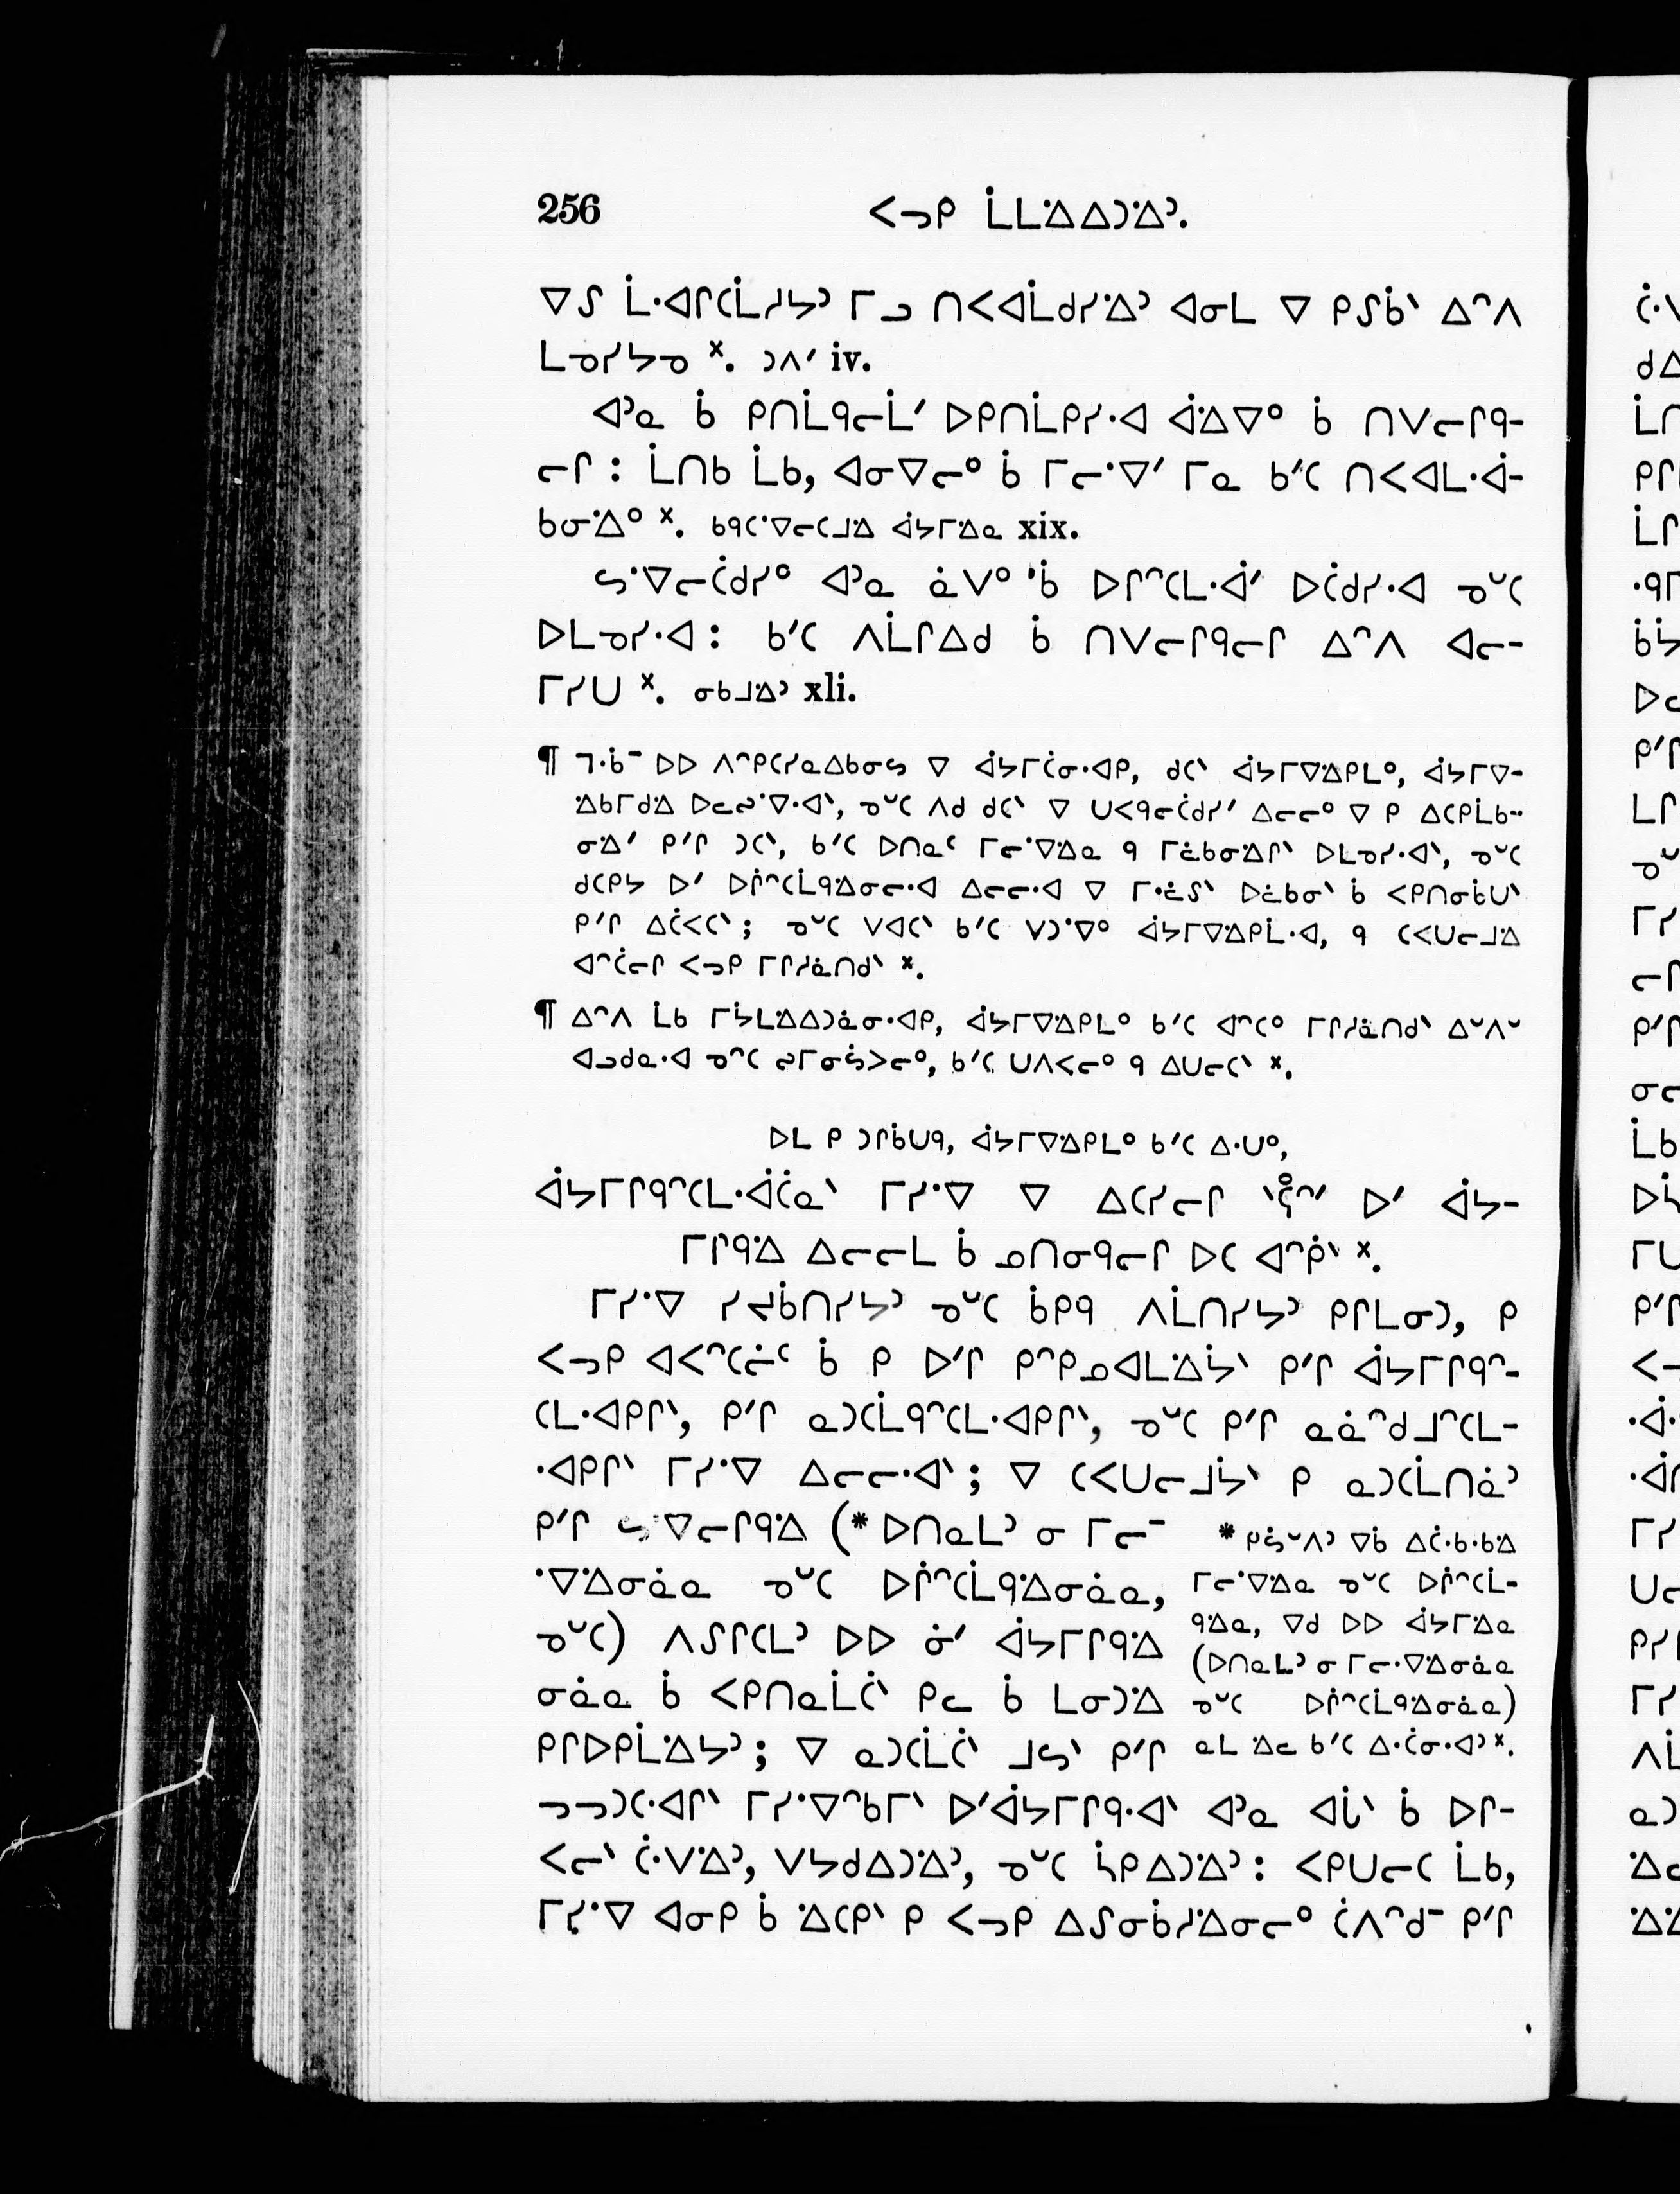 256 ᐸᓓᑭ ᒫᒪᐏᐃᑐᐏᐣ.
ᐁᔑ ᒫᐧᐊᒋᑕᒫᓱᔭᐣ ᒥᓗ ᑎᐸᐊᒫᑯᓯᐏᐣ ᐊᓂᒪ ᐁ ᑭᔑᑳᐠ ᐃᐢᐱ
ᒪᓀᓯᔭᓀ ᕽ. ᑐᐱᐟ iv.
ᐊᐣᓇ ᑳ ᑭᑎᒫᑫᓕᒫᐟ ᐅᑭᑎᒫᑭᓯᐧᐊ ᐋᐏᐁᐤ ᑳ ᑎᐯᓕᒋᑫ-
ᓕᒋ : ᒫᑎᑲ ᒫᑲ, ᐊᓂᐁᓕᐤ ᑳ ᒥᓕᐧᐁᐟ ᒥᓇ ᑲᐟᑕ ᑎᐸᐊᒪᐧᐋ-
ᑲᓂᐏᐤ ᕽ. ᑲᑫᑕᐧᐁᓕᑕᒧᐏ ᐋᔭᒥᐏᓇ xix.
ᓴᐧᐁᓕᑖᑯᓯᐤ ᐊᐣᓇ ᓈᐯᐤ ᑳ ᐅᒋᐢᑕᒪᐧᐋᐟ ᐅᑖᑯᓯᐧᐊ ᓀᐡᑕ
ᐅᒪᓀᓯᐧᐊ : ᑲᐟᑕ ᐱᒫᒋᐃᑯ ᑳ ᑎᐯᓕᒋᑫᓕᒋ ᐃᐢᐱ ᐊᓕ-
ᒥᓯᑌ ᕽ. ᓂᑲᒧᐏᐣ xli.
¶ ᒣᐧᑳᐨ ᐅᐅ ᐱᐢᑭᑕᓯᓇᐃᑲᓂᓴ ᐁ ᐋᔭᒥᑖᓂᐧᐊᑭ, ᑯᑕᐠ ᐋᔭᒥᐁᐏᑭᒪᐤ, ᐋᔭᒥᐁ-
ᐏᑲᒥᑯᐏ ᐅᓚᓱᐧᐁᐧᐊᐠ, ᓀᐡᑕ ᐱᑯ ᑯᑕᐠ ᐁ ᑌᐸᑫᓕᑖᑯᓯᐟ ᐃᓕᓕᐤ ᐁ ᑭ ᐃᑕᑭᒫᑲ-
ᓂᐏᐟ ᑭᐟᒋ ᑐᑕᐠ, ᑲᐟᑕ ᐅᑎᓇᑦ ᒥᓕᐧᐁᐏᓇ ᑫ ᒥᓈᑲᓂᐏᒋᐠ ᐅᒪᓀᓯᐧᐊᐠ, ᓀᐡᑕ
ᑯᑕᑭᔭ ᐅᐟ ᐅᒌᐢᑕᒫᑫᐏᓂᓕᐧᐊ ᐃᓕᓕᐧᐊ ᐁ ᒥᐧᓈᔑᐠ ᐅᓈᑲᓂᐠ ᑳ ᐸᑭᑎᓂᑳᑌᐠ
ᑭᐟᒋ ᐃᑖᐸᑕᐠ ; ᓀᐡᑕ ᐯᐊᑕᐠ ᑲᐟᑕ ᐯᑐᐧᐁᐤ ᐋᔭᒥᐁᐏᑭᒫᐧᐊ, ᑫ ᑕᐸᑌᓕᒧᐏ
ᐊᐢᑖᓕᒋ ᐸᓓᑭ ᒥᒋᓱᓈᑎᑯᐠ ᕽ.
¶ ᐃᐢᐱ ᒫᑲ ᒥᔮᒪᐏᐃᑐᓈᓂᐧᐊᑭ, ᐋᔭᒥᐁᐏᑭᒪᐤ ᑲᐟᑕ ᐊᐢᑕᐤ ᒥᒋᓱᓈᑎᑯᐠ ᐃᐡᐱᐡ
ᐊᓗᑯᓇᐧᐊ ᓀᐢᑕ ᔓᒥᓂᓵᐳᓕᐤ, ᑲᐟᑕ ᑌᐱᐸᓕᐤ ᑫ ᐃᑌᓕᑕᐠ ᕽ.
ᐅᒪ ᑭ ᑐᒋᑳᑌᑫ, ᐋᔭᒥᐁᐏᑭᒪᐤ ᑲᐟᑕ ᐃᐧᑌᐤ,
ᐋᔭᒥᒋᑫᐢᑕᒪᐧᐋᑖᓇᐠ ᒥᓯᐧᐁ ᐁ ᐃᑕᓯᓕᒋ ᐅᐟ ᐋᔭ-
ᒥᒋᑫᐏ ᐃᓕᓕᒪ ᑳ ᓄᑎᓂᑫᓕᒋ ᐅᑕ ᐊᐢᑮᐠ ᕽ.
ᒥᓯᐧᐁ ᓯᔪᑳᑎᓯᔭᐣ ᓀᐡᑕ ᑳᑭᑫ ᐱᒫᑎᓯᔭᐣ ᑭᒋᒪᓂᑐ, ᑭ
ᐸᓓᑭ ᐊᐸᐢᑕᓖᑦ ᑳ ᑭ ᐅᐟᒋ ᑭᐢᑭᓄᐊᒪᐏᔮᐠ ᑭᐟᒋ ᐋᔭᒥᒋᑫᐢ-
ᑕᒪᐧᐊᑭᒋᐠ, ᑭᐟᒋ ᓇᑐᑕᒫᑫᐢᑕᒪᐧᐊᑭᒋᐠ, ᓀᐡᑕ ᑭᐟᒋ ᓇᓈᐢᑯᒧᐢᑕᒪ-
ᐧᐊᑭᒋᐠ ᒥᓯᐧᐁ ᐃᓕᓕᐧᐊᐠ ; ᐁ ᑕᐸᑌᓕᒧᔮᐠ ᑭ ᓇᑐᑕᒫᑎᓈᐣ
ᑭᐟᒋ ᓴᐧᐁᓕᒋᑫᐏ (* ᐅᑎᓇᒪᐣ ᓂ ᒥᓕ-
ᐧᐁᐏᓂᓈᓇ ᓀᐡᑕ ᐅᒌᐢᑕᒫᑫᐏᓂᓈᓇ,
ᓀᐡᑕ) ᐱᔑᒋᑕᒪᐣ ᐅᐅ ᓃᐟ ᐋᔭᒥᒋᑫᐏ
ᓂᓈᓇ ᑳ ᐸᑭᑎᓇᒫᑖᐠ ᑭᓚ ᑳ ᒪᓂᑐᐏ
ᑭᒋᐅᑭᒫᐏᔭᐣ ; ᐁ ᓇᑐᑕᒫᑖᐠ ᒧᓴᐠ ᑭᐟᒋ
* ᑭᓵᐡᐱᐣ ᐁᑳ ᐃᑖᐧᑲᐧᑲᐏ
ᒥᓕᐧᐁᐏᓇ ᓀᐡᑕ ᐅᒌᐢᑕᒫ-
ᑫᐏᓇ, ᐁᑯ ᐅᐅ ᐋᔭᒥᐏᓇ
(ᐅᑎᓇᒪᐣ ᓂ ᒥᓕᐧᐁᐏᓂᓈᓇ
ᓀᐡᑕ ᐅᒌᐢᑕᒫᑫᐏᓂᓈᓇ)
ᓇᒪ ᐏᓚ ᑲᐟᑕ ᐃᐧᑖᓂᐧᐊᐣ ᕽ.
ᓓᓓᑐᑕᐧᐊᒋᐠ ᒥᓯᐧᐁᐢᑲᒥᐠ ᐅᐟᐋᔭᒥᒋᑫᐧᐊᐠ ᐊᐣᓇ ᐊᒑᐠ ᑳ ᐅᒋ-
ᐸᓕᐠ ᑖᐧᐯᐏᐣ, ᐯᔭᑯᐃᑐᐏᐣ, ᓀᐡᑕ ᓵᑭᐃᑐᐏᐣ : ᐸᑭᑌᓕᑕ ᒫᑲ,
ᒥᓯᐧᐁ ᐊᓂᑭ ᑳ ᐏᑕᑭᐠ ᑭ ᐸᓓᑭ ᐃᔑᓂᑳᓱᐏᓂᓕᐤ ᑖᐱᐢᑯᐨ ᑭᐟᒋ